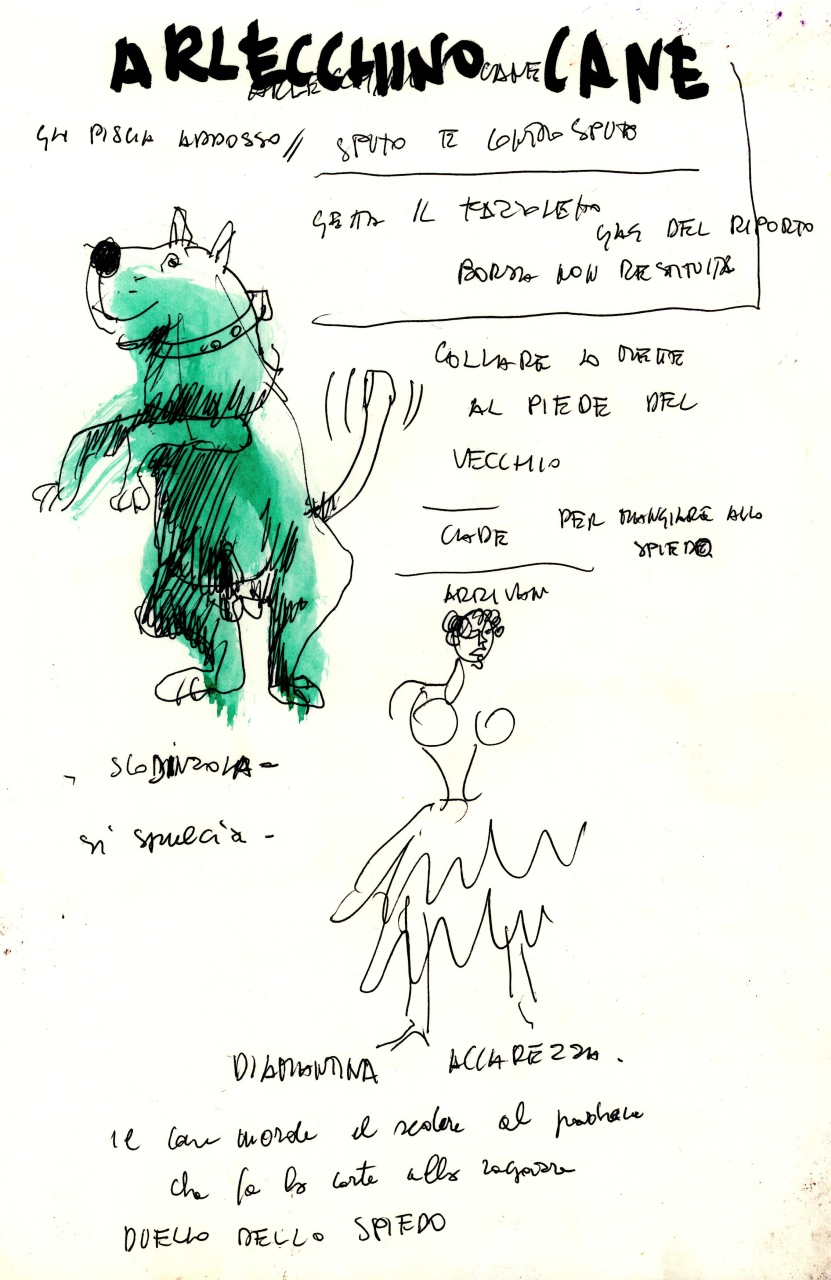 ARLECCHINO CANE
ARLECCHINO CANE
GLI PISCIA ADDOSSO // SPUTO E CONTRO SPUTO
GETTA IL FAZZOLETTO
GAG DEL RIPORTO
BORSA NON RESTITUITA
COLLARE LO METTE
AL PIEDE DEL
VECCHIO
CADE PER MANGIARE ALLO
SPIEDO
ARRIVAN
SCODINZOLA -
si spulcia -
DIAMANTINA ACCAREZZA.
il cane morde il sedere al padrone
che fa la corte alla ragazza
DUELLO DELLO SPIEDO